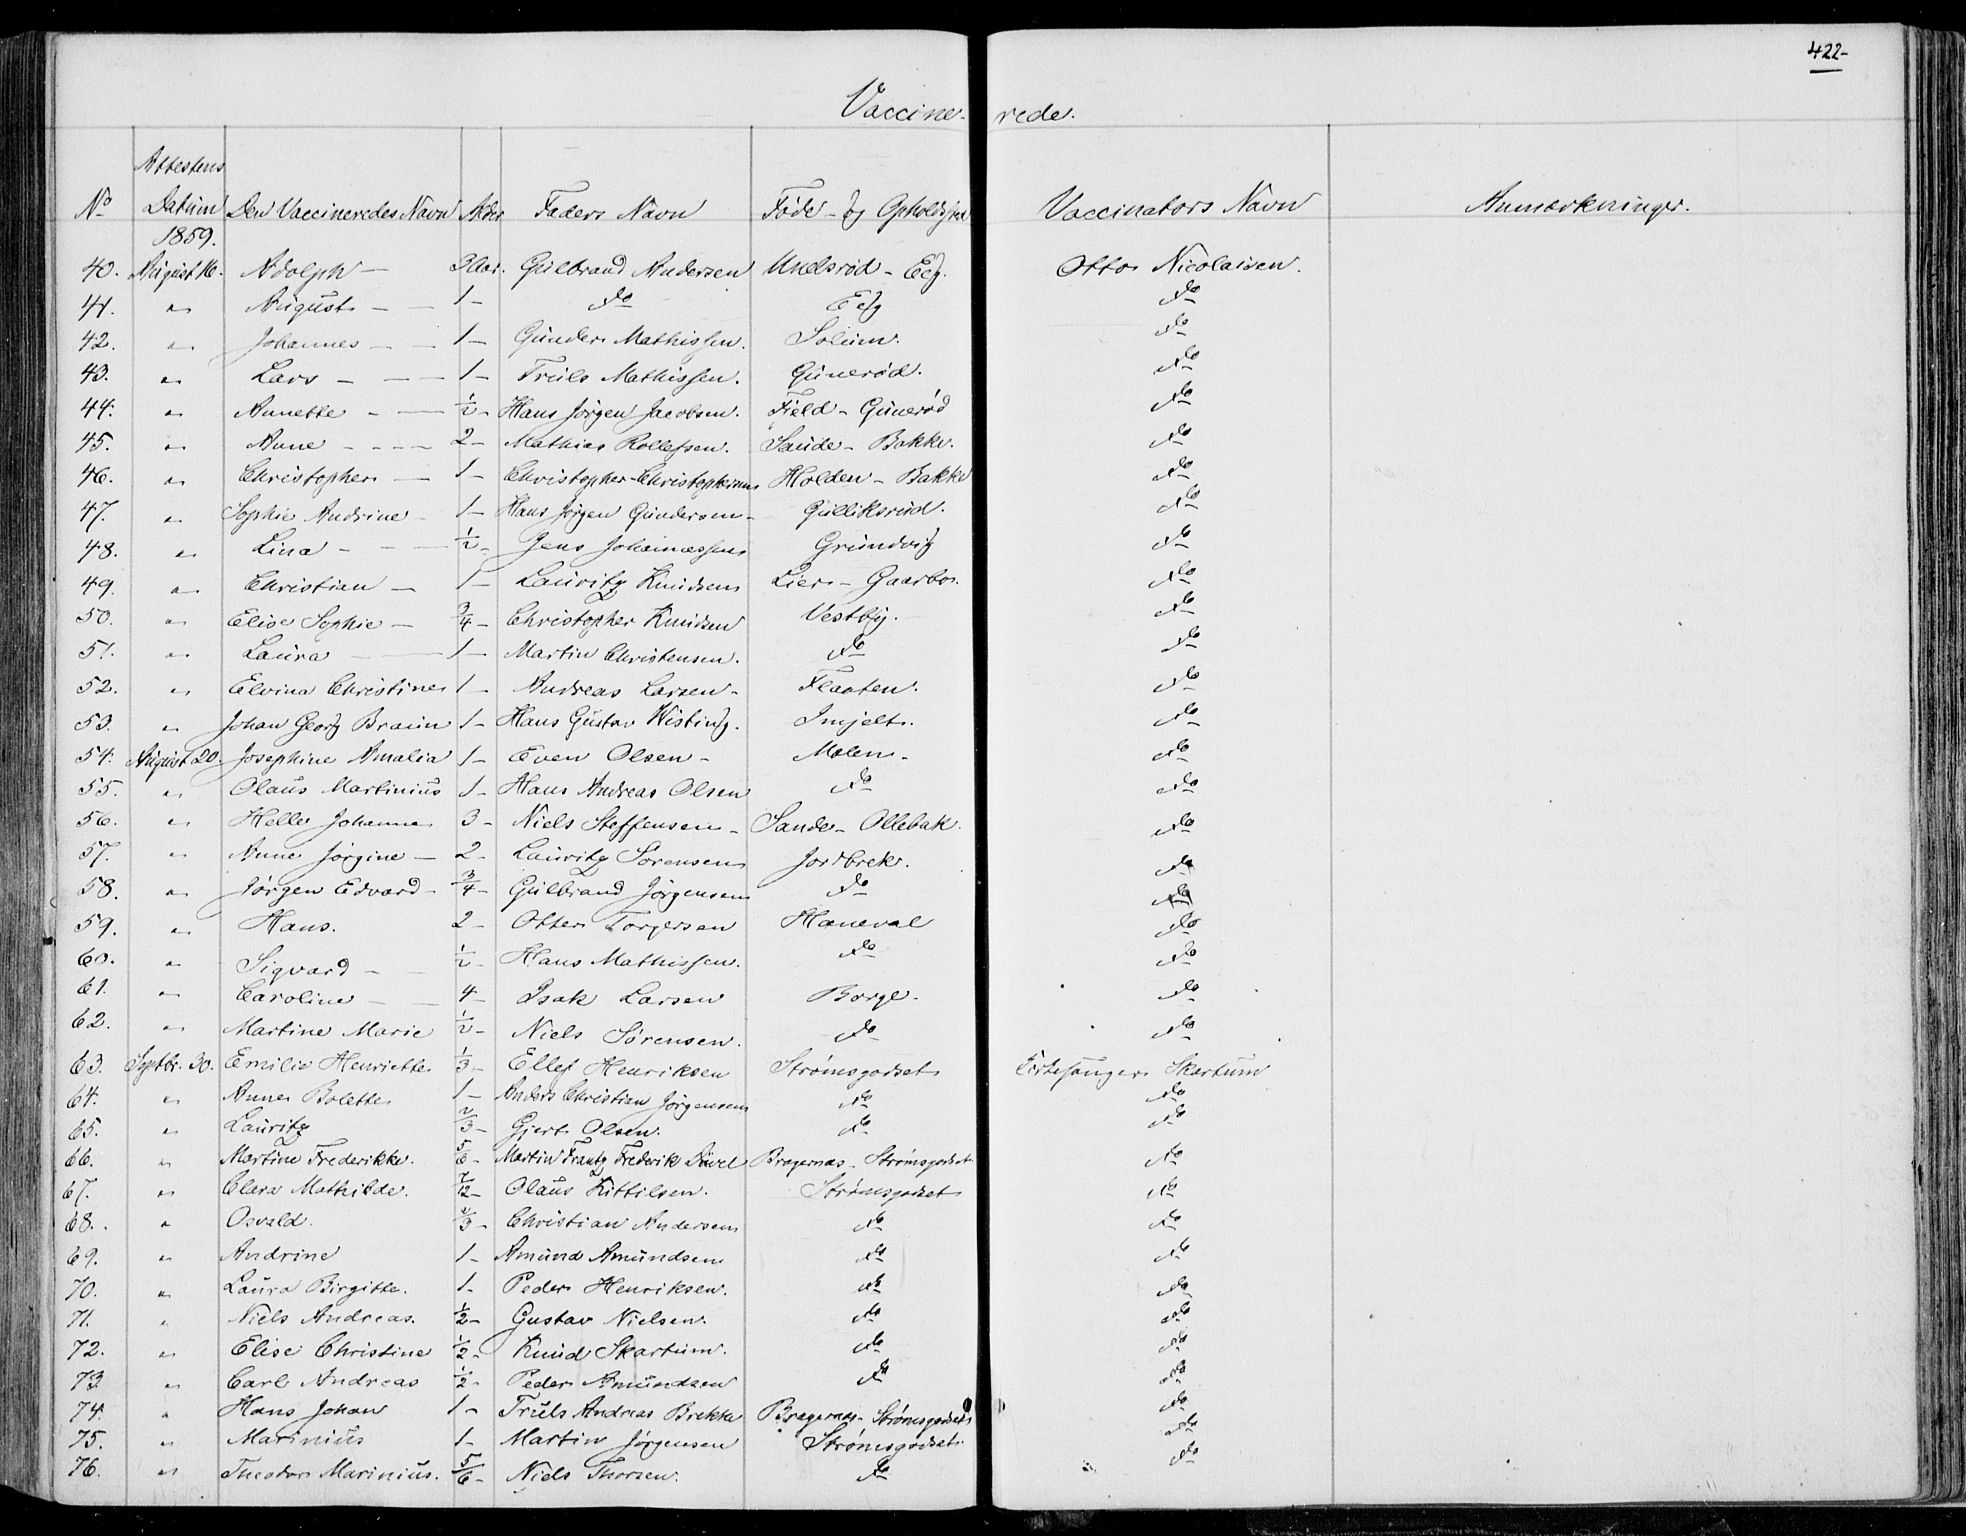 422-
Vaccine- rede.
No Attestens Datum Den Vaccineredes Navn Alder Faders Navn Føde- og Opholdssted Vaccinators Navn Anmærkninger.
1859.
40. August 16. Adolph - 3 Aar. Gulbrand Andersen - Eeg. Otto Nicolaisen.
41. " August - 1- do Eeg do
42. " Johannes - 1- Gunder Mathissen. Solum. do
43. " Lars - 1- Truls Mathissen. Gunerød. do
44. " Annette - 1/2- Hans Jørgen Jacobsen. Field - Gunerød do
45. " Anne - 2- Mathias Rollefsen. Sande - Bakke. do
46. " Christopher - 1- Christopher Christophersen Holden - Bakke do
47. " Sophie Andrine - 1- Hans Jørgen Gundersen - Gulliksrud. do
48. " Lina - 1/2- Jens Johannessen Grundvig do
49. " Christian - 1- Lauritz Knudsen Lier - Gaarbo. do
50. " Elise Sophie - 3/4- Christopher Knudsen Vestby. do
51. " Laura - 1- Martin Christensen. do do
52. " Elvina Christine 1- Andreas Larsen - Flaaten. do
53. " Johan Georg Braun 1- Hans Gustav Wisting. Imjelt. do
54. August 20. Josephine Amalia 1- Even Olsen - Molen - do
55. " Olaus Martinius 1- Hans Andreas Olsen do do
56. " Helle Johanne 3- Niels Steffensen - Sande - Ollebak. do
57. " Anne Jørgine - 2- Lauritz Sørensen Jordbrek. do
58. " Jørgen Edvard - 3/4- Gulbrand Jørgensen do do
59. " Hans. 2- Otter Torgersen Haneval do
60. " Sigvard - 1/2- Hans Mathissen. do do
61. " Caroline - 4- Isak Larsen Borge. do
62. " Martine Marie 1/2- Niels Sørensen. do do
63. Septbr. 30. Emilie Henriette 1/3- Ellef Henriksen Strømsgodset Kirkesanger Skartum
64. " Anne Bolette 1- Anders Christian Jørgensen do do
65. " Lauritz 2/3- Gjert Olsen. do do
66. " Martine Frederikke. 5/6- Martin Frantz Frederik Bragernæs - Strømsgodset do
67. " Clara Mathilde. 7/12- Olaus Kittilsen. Strømsgodset do
68. " Osvald. 2/3- Christian Andersen do do
69. " Andrine 1- Amund Amundsen do do
70. " Laura Birgitte. 1- Peder Henriksen. do do
71. " Niels Andreas. 1/2- Gustav Nielsen. do do
72. " Elise Christine 1/2- Knud Skartum. do do
73. " Carl Andreas 1/2- Peder Amundsen do do
74. " Hans Johan 1- Truls Andreas Brekke Bragernæs - Strømsgodset do
75. " Marinius 1- Martin Jørgensen Strømsgodset. do
76. " Theodor Marinius. 5/6- Niels Thorsen. do do